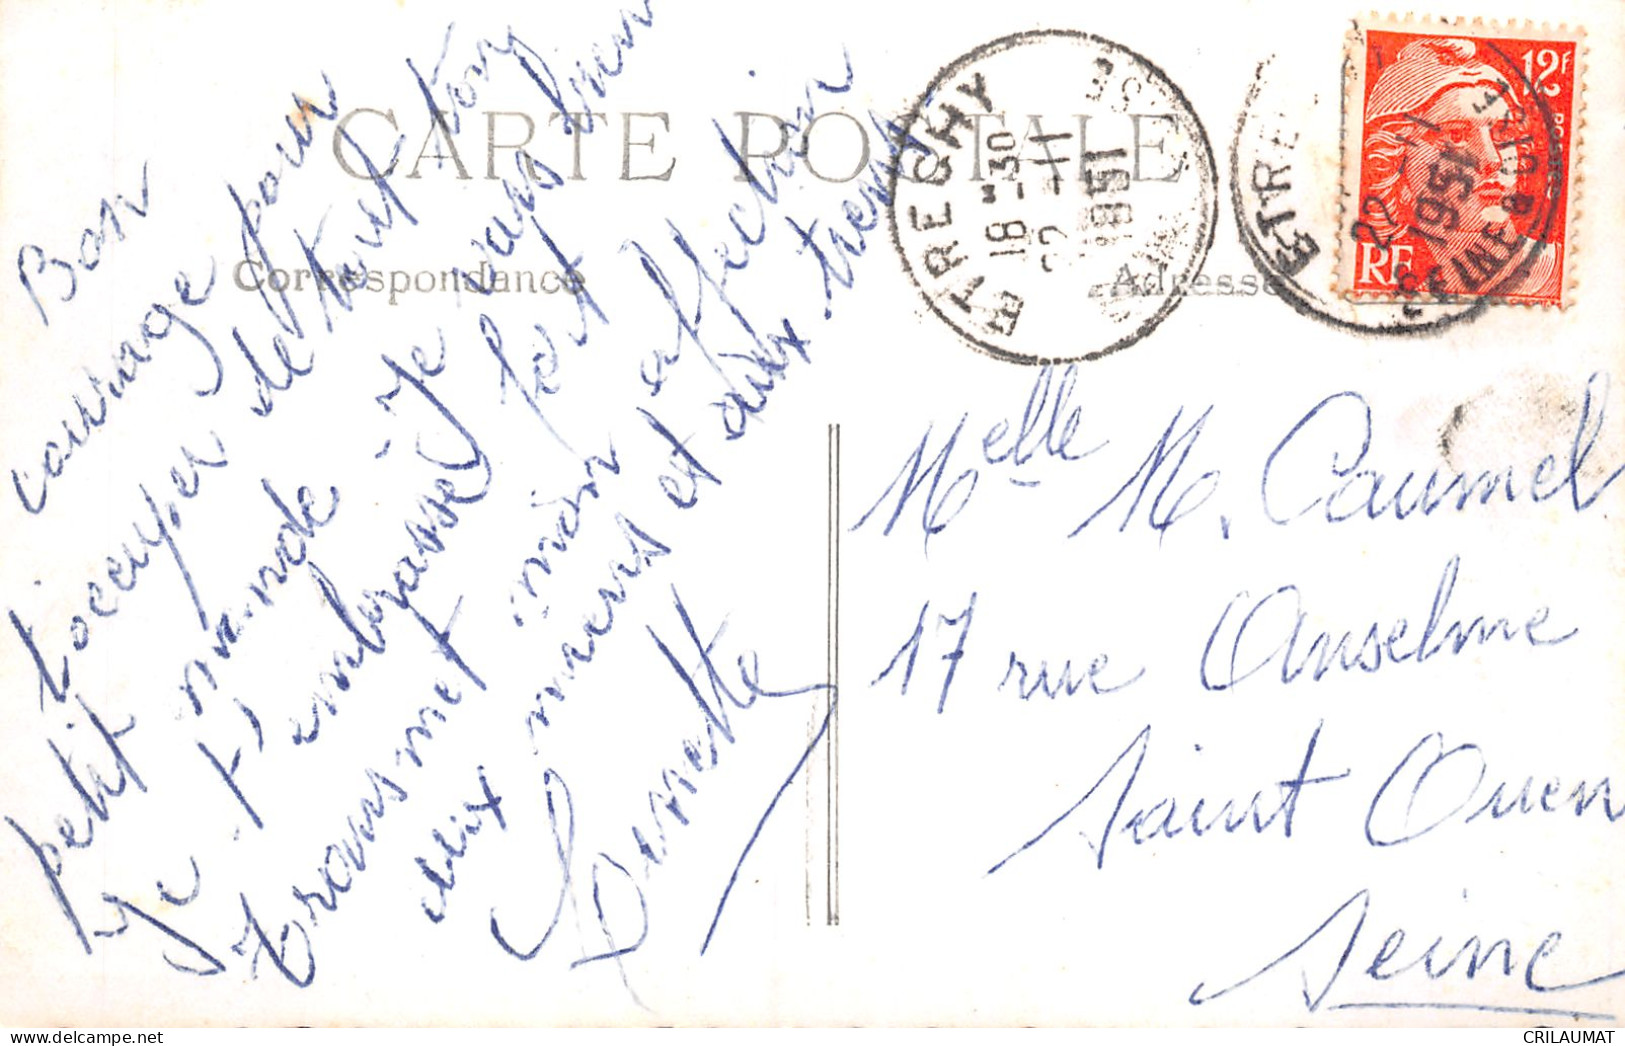 CARTE POSTALE
Correspondance
Adresse
Bon
courage pour
t'occuper de tout ton
petit monde. Je vais bien
Je t'embrasse fort
transmet mon affection
aux miens et aux tiens
ETRECHY
18 H 30
22 - 11
1951
SEINE & OISE
ETRE
22 - 11
1951
SEINE & OISE
12F
RF
Melle M. Caumel
17 rue Anselme
Saint Ouen
Seine
CRILAUMAT